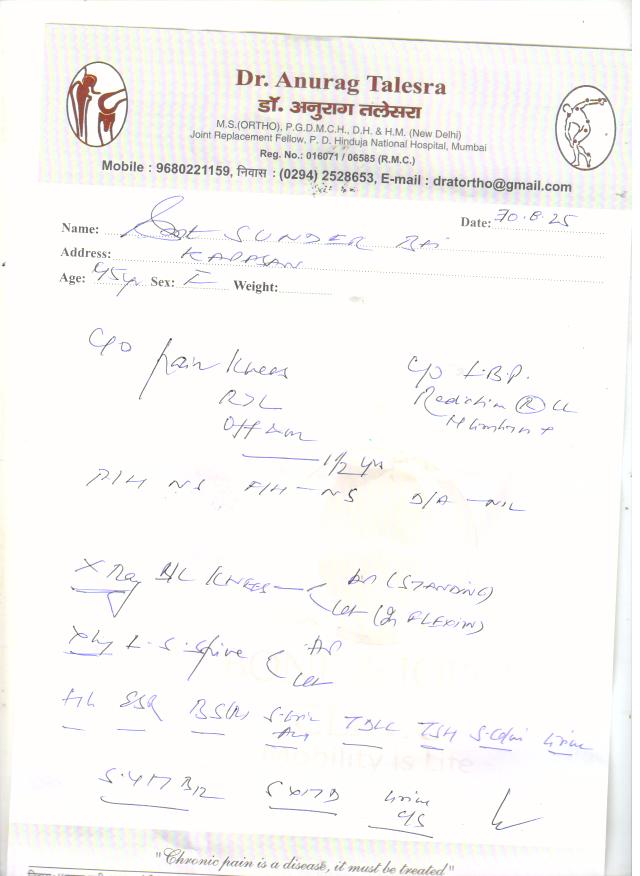 Dr. Anurag Talesra
डॉ. अनुराग तलेसरा
M.S.(ORTHO), P.G.D.M.C.H., D.H. & H.M. (New Delhi)
Joint Replacement Fellow, P. D. Hinduja National Hospital, Mumbai
Reg. No.: 016071 / 06585 (R.M.C.)
Mobile : 9680221159, निवास : (0294) 2528653, E-mail : dratortho@gmail.com
Date: 30.8.25
Name: SUNDER BAI
Address: KAPASAN
Age: 45yr Sex: F Weight:
C/o pain Knees
R>L
Off & on
1/2 yr
C/o L.B.P.
Radiation R LL
P/H NS F/H - NS D/A - NIL
X Ray B/L KNEES AP (STANDING)
Lat (In FLEXION)
Xray L-S-Spine AP
Lat
Hb ESR BS(R) S-Uric TDLC TSH S.Calci Urine
Acid
S.VIT B12 S VIT D Urine
C/S
Mobility is Life
"Chronic pain is a disease, it must be treated"